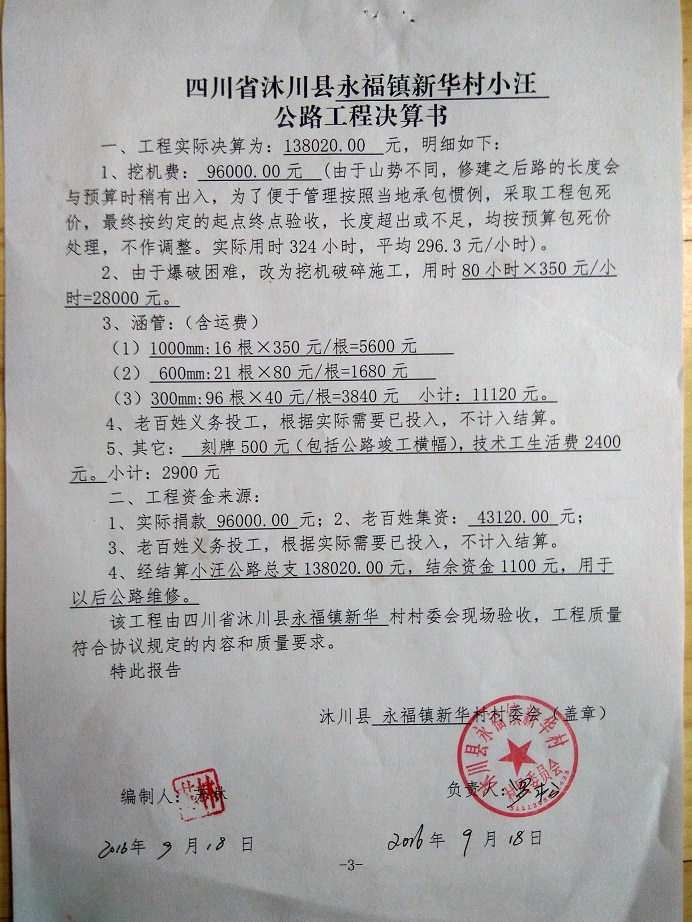 四川省沐川县永福镇新华村小汪
公路工程决算书
一、工程实际决算为：138020.00 元，明细如下：
1、挖机费：96000.00 元 (由于山势不同，修建之后路的长度会
与预算时稍有出入，为了便于管理按照当地承包惯例，采取工程包死
价，最终按约定的起点终点验收，长度超出或不足，均按预算包死价
处理，不作调整。实际用时324小时，平均296.3元/小时)。
2、由于爆破困难，改为挖机破碎施工，用时80小时×350元/小
时=28000元。
3、涵管：（含运费）
（1）1000mm:16根×350元/根=5600元
（2） 600mm:21根×80元/根=1680元
（3）300mm:96根×40元/根=3840元 小计：11120元。
4、老百姓义务投工，根据实际需要已投入，不计入结算。
5、其它： 刻牌500元（包括公路竣工横幅），技术工生活费2400
元。小计：2900元
二、工程资金来源：
1、实际捐款 96000.00 元；2、老百姓集资： 43120.00 元；
3、老百姓义务投工，根据实际需要已投入，不计入结算。
4、经结算小汪公路总支138020.00元，结余资金1100元，用于
以后公路维修。
该工程由四川省沐川县永福镇新华 村村委会现场验收，工程质量
符合协议规定的内容和质量要求。
特此报告
沐川县 永福镇新华村村委会（盖章）
沐川县永福镇新华村
村民委员会
编制人：
负责人：
2016年 9月18日
2016年 9月18日
-3-